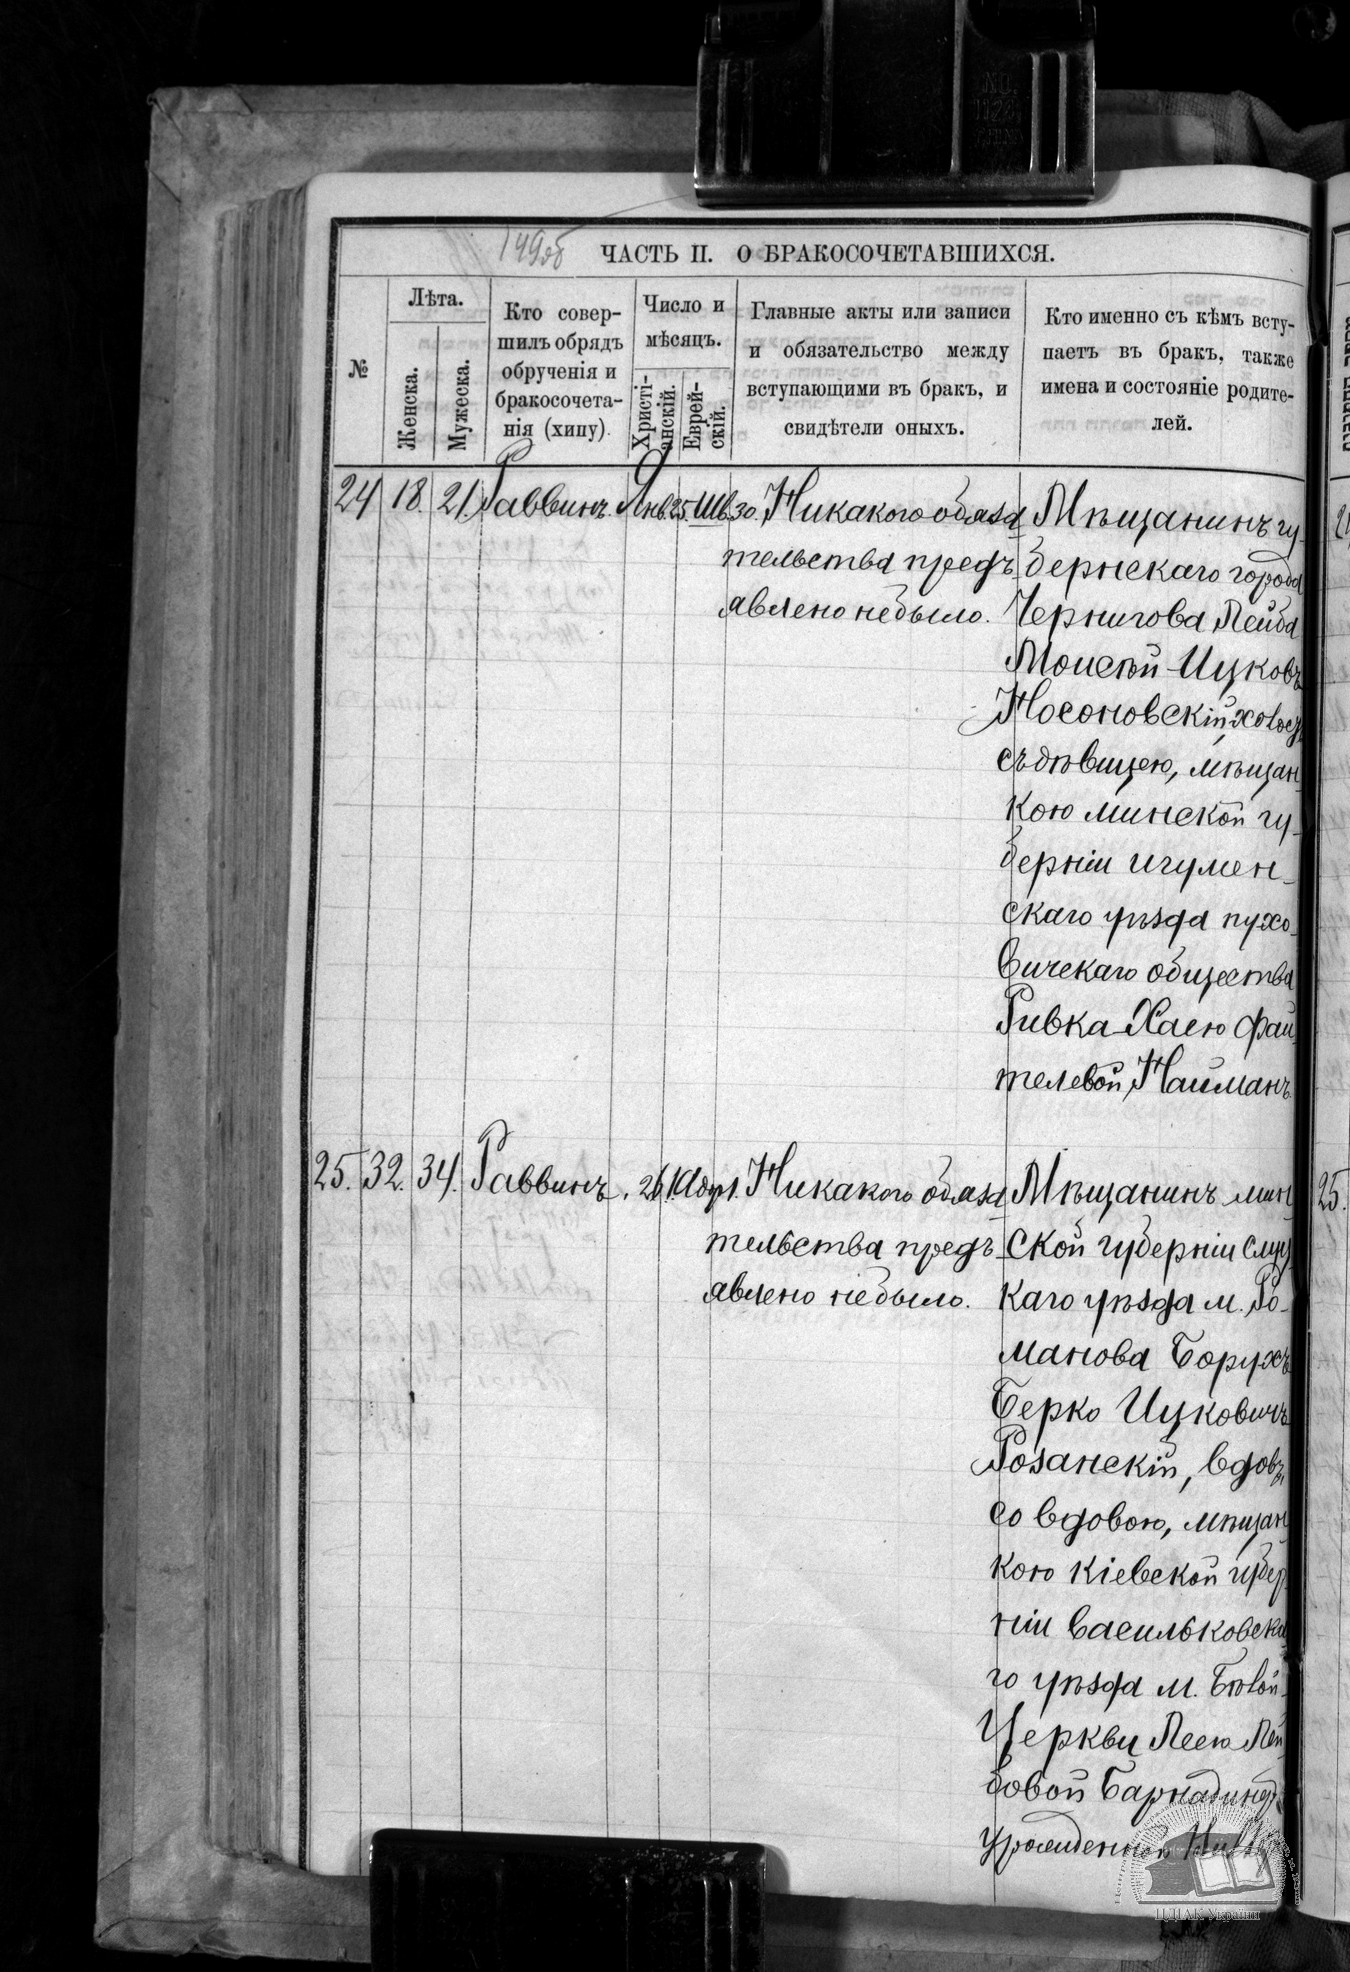 149об
ЧАСТЬ II. О БРАКОСОЧЕТАВШИХСЯ.
№
Лѣта.
Женска.
Мужеска.
Кто совер-
шилъ обрядъ
обрученія и
бракосочета-
нія (хипу)
Число и
мѣсяцъ.
Христі-
анскій.
Еврей-
скій.
Главные акты или записи
и обязательство между
вступающими въ бракъ, и
свидѣтели оныхъ.
Кто именно съ кѣмъ всту-
паетъ въ бракъ, также
имена и состояніе родите-
лей.
24 18. 21. Раввинъ. Янв. 25. Шв. 30.
Никакого обяза
тельства предъ
явлено небыло.
Мѣщанинъ гу-
бернскаго города
Чернигова Лейба
Моисей Ицковъ
Носоновскій, холост
съ дѣвицею, мѣщан
кою минской гу-
берніи игумен-
скаго уѣзда пухо-
вичскаго общества
Ривка-Хаею Фай
телевой Найманъ.
25. 32. 34. Раввинъ. 26. 1.
Никакого обяза
тельства предъ
явлено небыло.
Мѣщанинъ мин
ской губерніи слуц
каго уѣзда м. Ро-
манова Борухъ
Берко Ицковичъ
Розанскій, вдовъ,
со вдовою, мѣщан
кою кіевской губер
ніи васильковска
го уѣзда м. Бѣлой-
Церкви Леею Лей
бовой
урожденной
25.
ЦДІАК України